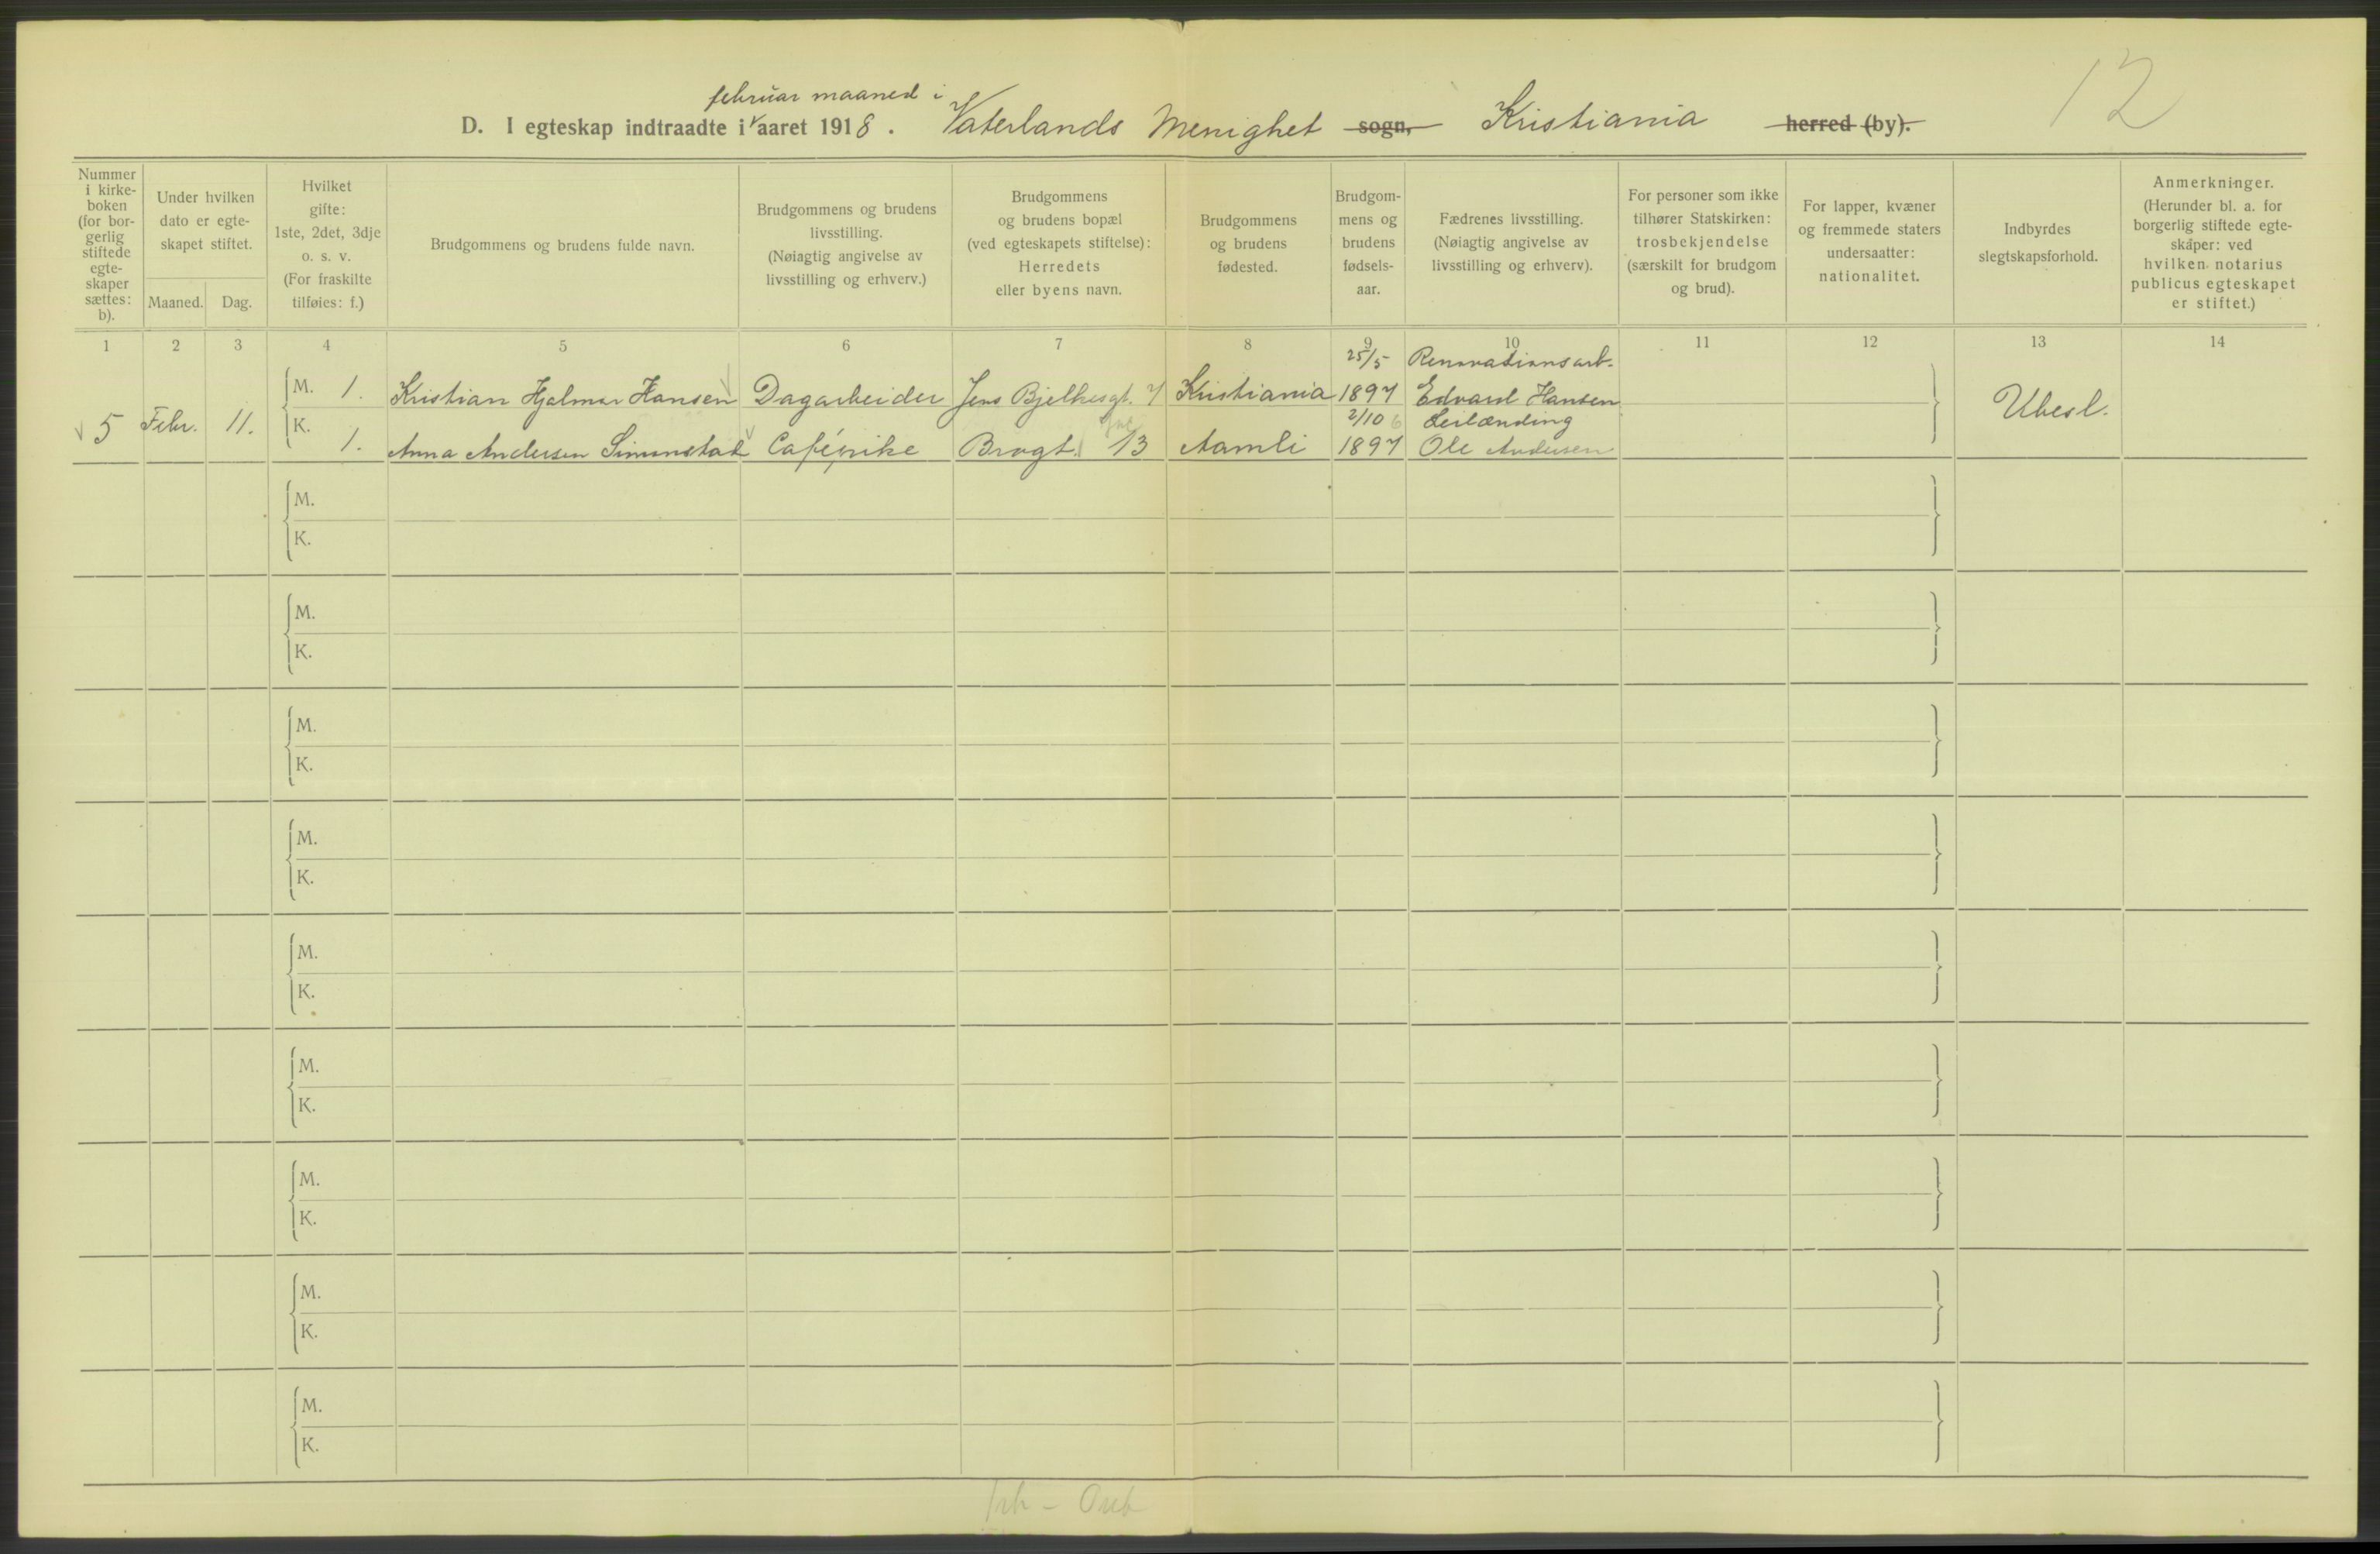 12
februar maaned i
D. I egteskap indtraadte i aaret 1918. Vaterlands Menighet sogn, Kristiania herred (by).
Nummer
i kirke-
boken
(for bor-
gerlig
stiftede
egte-
skaper
sættes:
b).
Under hvilken
dato er egte-
skapet stiftet.
Maaned. Dag.
Hvilket
gifte:
1ste, 2det, 3dje
o. s. v.
(For fraskilte
tilføies: f.)
Brudgommens og brudens fulde navn.
Brudgommens og brudens
livsstilling.
(Nøiagtig angivelse av
livsstilling og erhverv.)
Brudgommens
og brudens bopæl
(ved egteskapets stiftelse):
Herredets
eller byens navn.
Brudgommens
og brudens
fødested.
Brudgom-
mens og
brudens
fødsels-
aar.
Fædrenes livsstilling.
(Nøiagtig angivelse av
livsstilling og erhverv).
For personer som ikke
tilhører Statskirken:
trosbekjendelse
(særskilt for brudgom
og brud).
For lapper, kvæner
og fremmede staters
undersaatter:
nationalitet.
Indbyrdes
slegtskapsforhold.
Anmerkninger.
(Herunder bl. a. for
borgerlig stiftede egte-
skaper: ved
hvilken notarius
publicus egteskapet
er stiftet.)
1 2 3 4 5 6 7 8 9 10 11 12 13 14
25/5 Renovationsarb.
M. 1. Kristian Hjalmar Hansen Dagarbeider Jens Bjelkesgt. 7 Kristiania 1897 Edvard Hansen
5 Febr. 11. Ubesl.
2/10 6 Leilænding
K. 1. Anna Andersen Simonstad Cafépike Brogt. 13 Aamli 1897 Ole Andersen
M.
K.
M.
K.
M.
K.
M.
K.
M.
K.
M.
K.
M.
K.
M.
K.
M.
K.